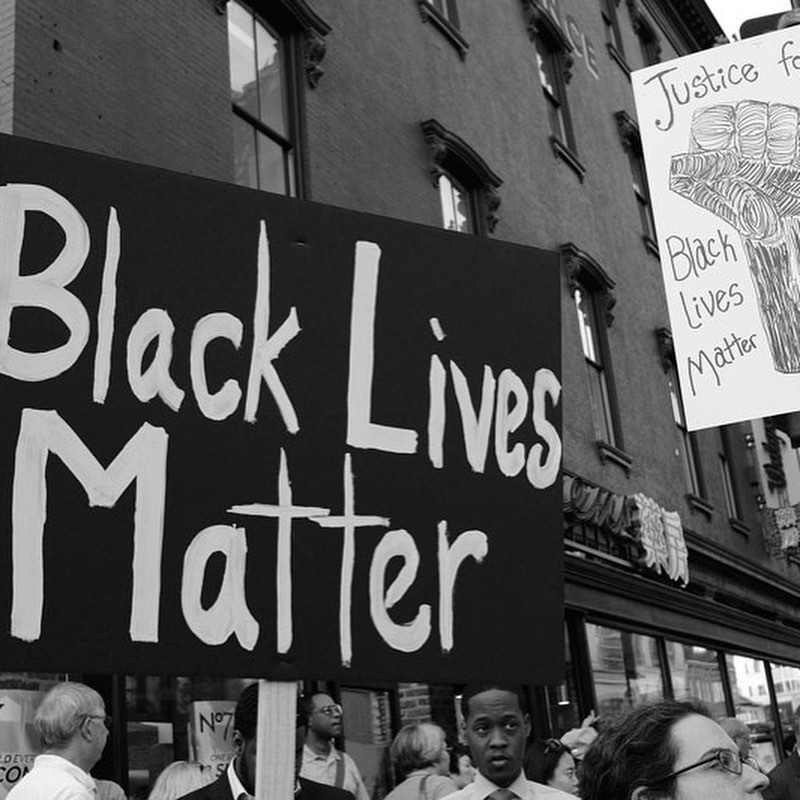 Black Lives
Matter
Justice fo
Black
Lives
Matter
No7